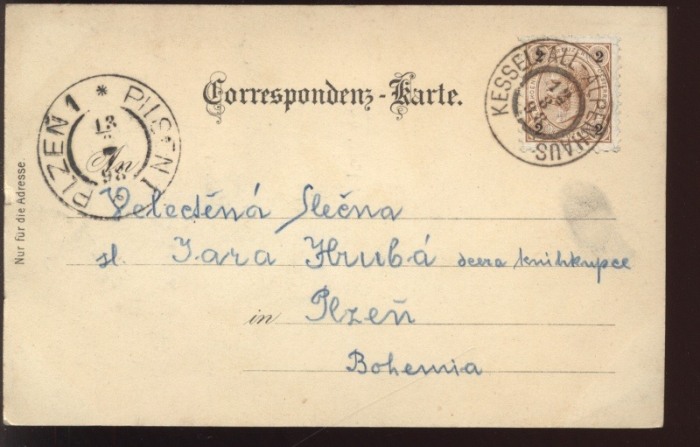 Correspondenz-Karte.
KESSELFALL-ALPENHAUS
2 2
2 2
PLZEN 1 * PILSEN 1
13
8
98
An
Velectěná Slečna
sl. Jara Hrubá dcera knihkupce
in Plzeň
Bohemia
Nur für die Adresse.